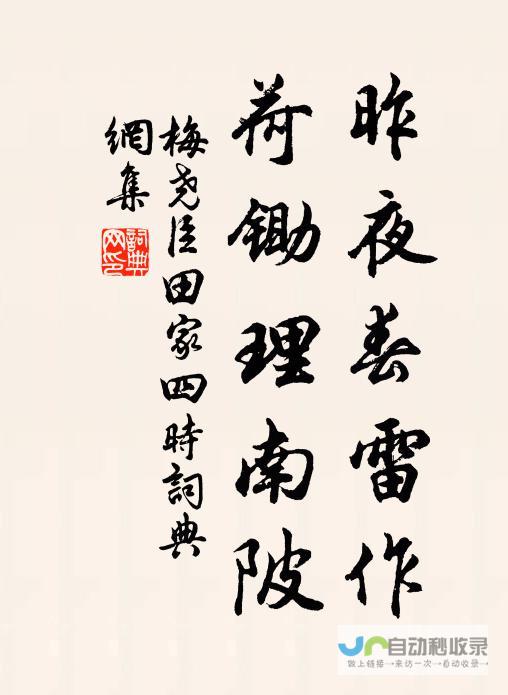 昨夜春雷作
荷鋤理南陂
梅堯臣田家四時詞典
網集
詞典網印
自动秒收录
做上链接→来访一次→自动收录